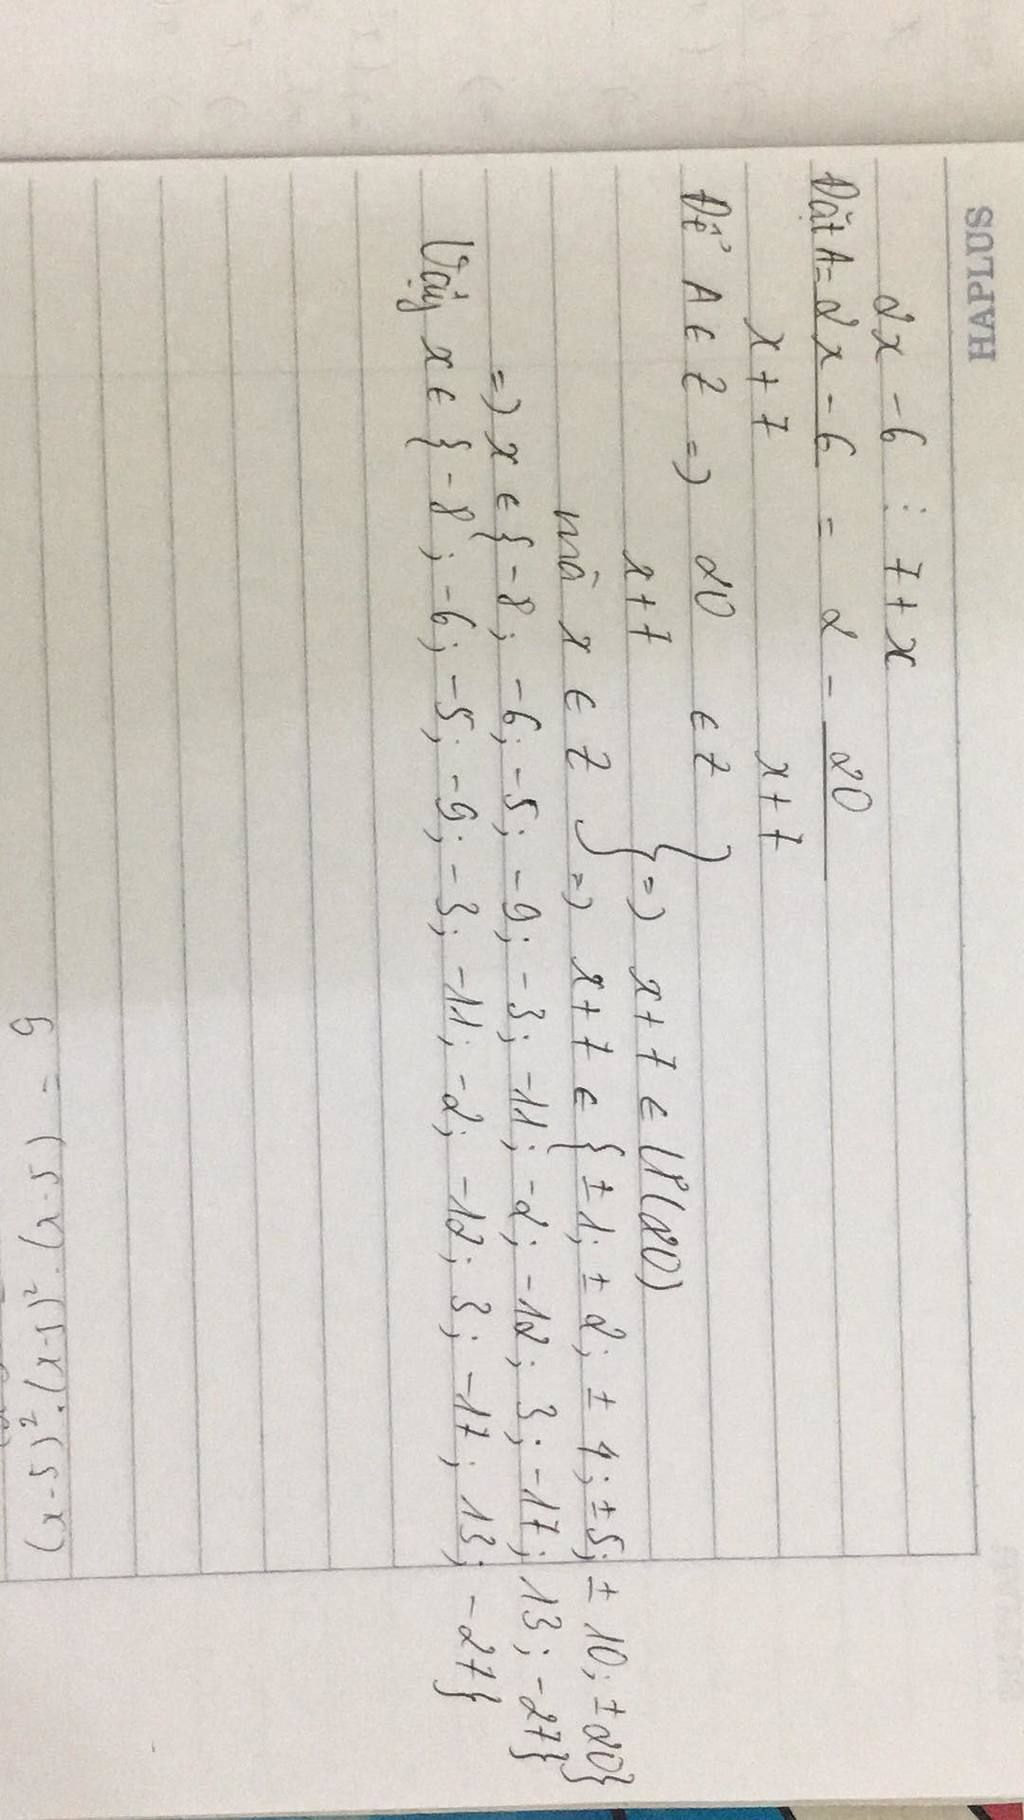 HAPLUS
2x - 6 ⋮ 7 + x
Đặt A = 2x - 6 = 2 - 20
x + 7 x + 7
Để A ∈ Z => 20 ∈ Z
x + 7 } => x + 7 ∈ Ư(20)
mà x ∈ Z } => x + 7 ∈ {±1; ±2; ±4; ±5; ±10; ±20}
=> x ∈ {-8; -6; -5; -9; -3; -11; -2; -12; 3; -17; 13; -27}
Vậy x ∈ {-8; -6; -5; -9; -3; -11; -2; -12; 3; -17; 13; -27}
(x-5)². (x-5)². (x-5) = 9